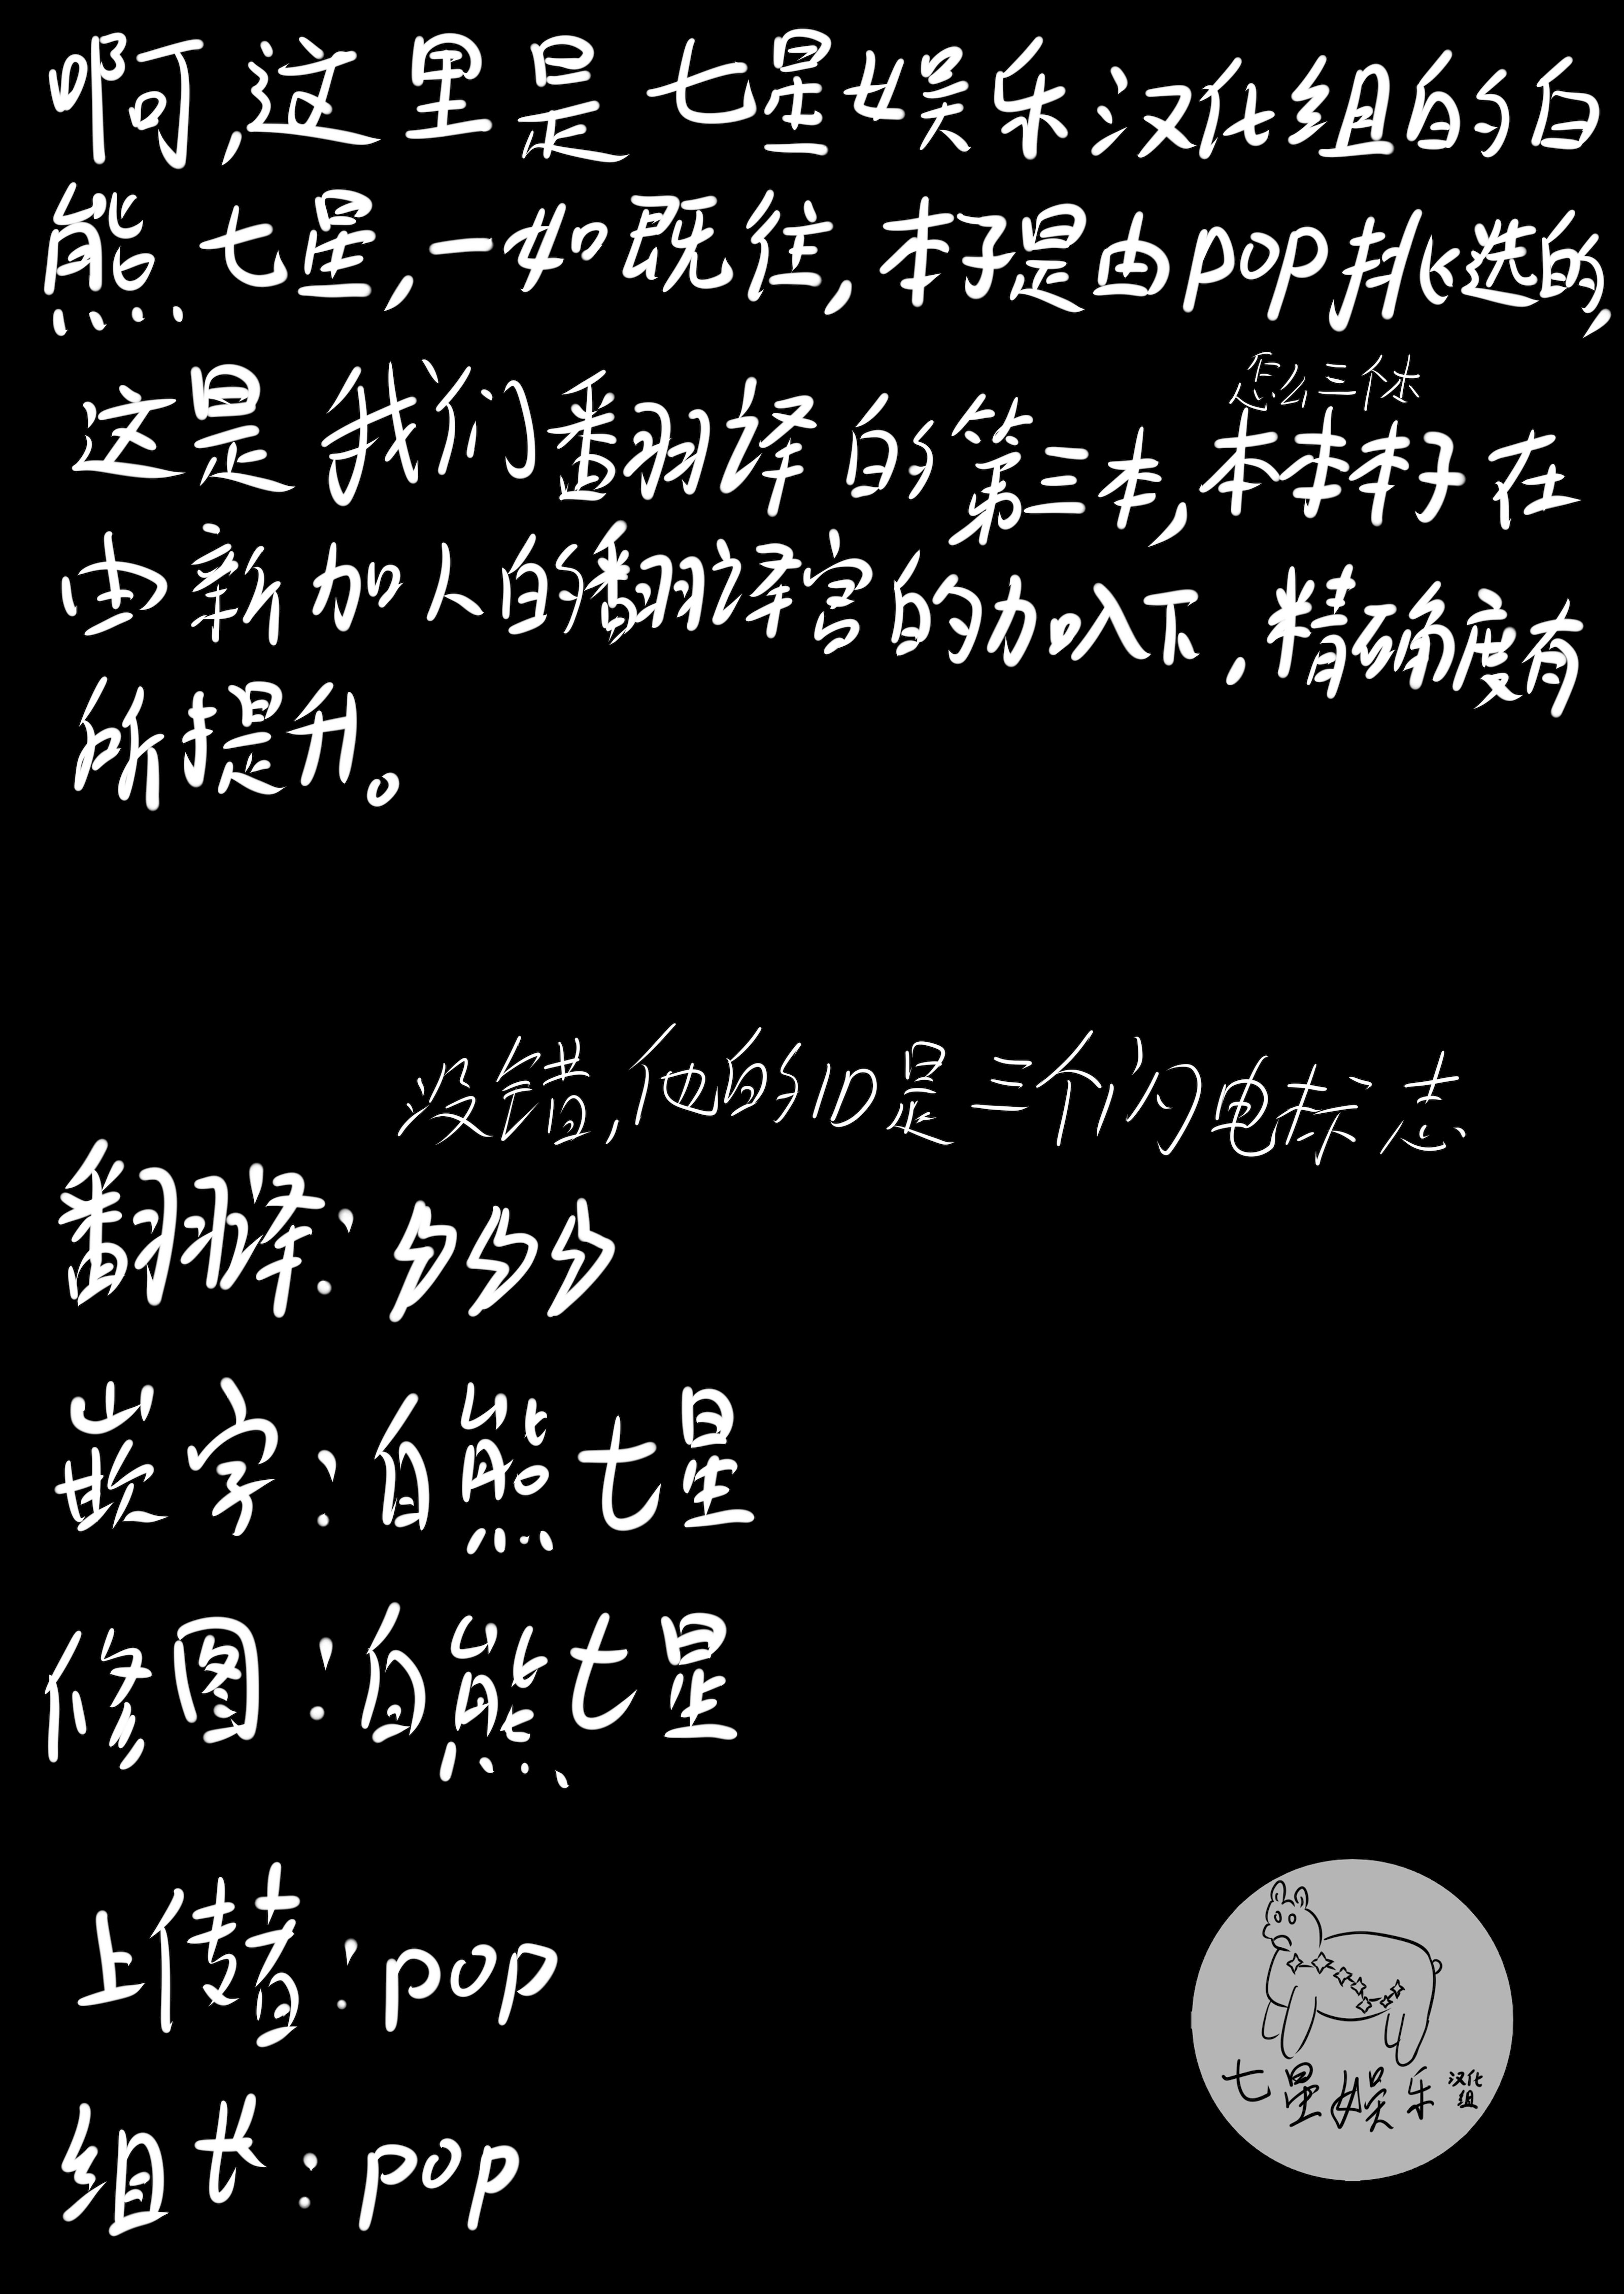 啊,这里是七星娱乐汉化组的白
熊七星,一如既往,本子是由pop挑选的,
怎么三个本
这是我们翻译的第三本,本本本子在
由新加入的翻译官的加入下,精确度有
所提升。
没错,他的ID是三个闪电标志
翻译:ϟϟϟ
嵌字:白熊七星
修图:白熊七星
上传者:pop
组长:pop
七星娱乐汉化
组